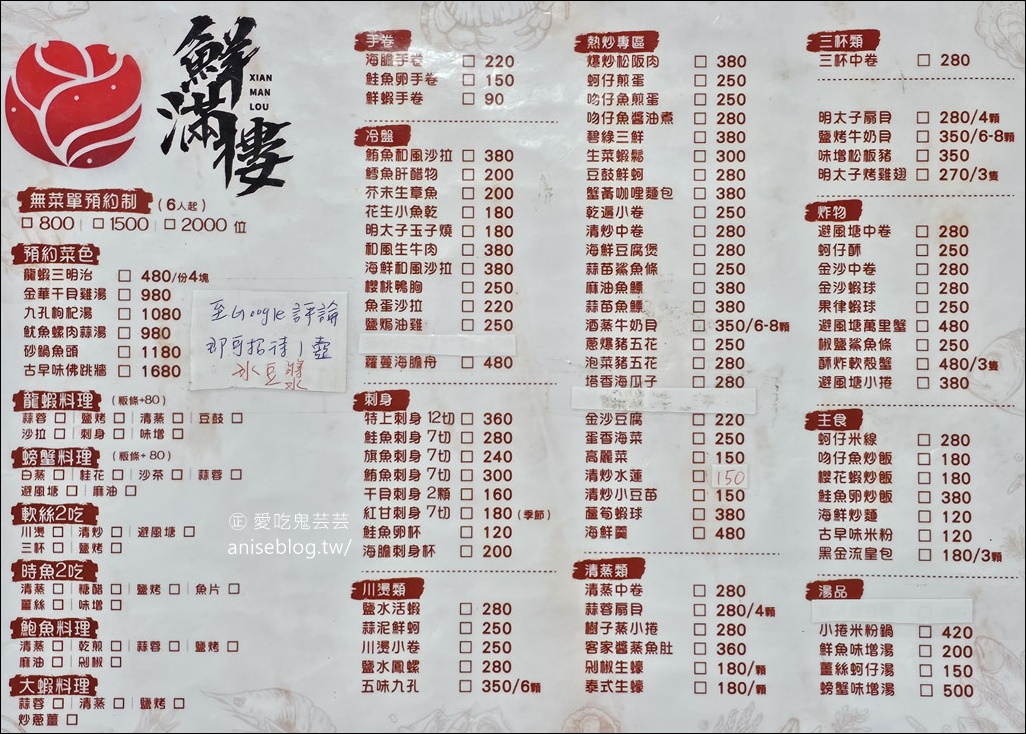 鮮滿樓
XIAN
MAN
LOU
無菜單預約制 (6人起)
□ 800 □ 1500 □ 2000 位
預約菜色
龍蝦三明治 □ 480/份4塊
金華干貝雞湯 □ 980
九孔枸杞湯 □ 1080
魷魚螺肉蒜湯 □ 980
砂鍋魚頭 □ 1180
古早味佛跳牆 □ 1680
至Google評論
即可招待1壺
冰豆漿
龍蝦料理 (粄條+80)
蒜蓉 □ 鹽烤 □ 清蒸 □ 豆鼓 □
沙拉 □ 刺身 □ 味增 □
螃蟹料理 (粄條+80)
白蒸 □ 桂花 □ 沙茶 □ 蒜蓉 □
避風塘 □ 麻油 □
軟絲2吃
川燙 □ 清炒 □ 避風塘 □
三杯 □ 鹽烤 □
時魚2吃
清蒸 □ 糖醋 □ 鹽烤 □ 魚片 □
薑絲 □ 味增 □
鮑魚料理
清蒸 □ 乾煎 □ 蒜蓉 □ 鹽烤 □
麻油 □ 剁椒 □
大蝦料理
蒜蓉 □ 清蒸 □ 鹽烤 □
炒蔥薑 □
手卷
海膽手卷 □ 220
鮭魚卵手卷 □ 150
鮮蝦手卷 □ 90
冷盤
鮪魚和風沙拉 □ 380
鱈魚肝醋物 □ 200
芥末生章魚 □ 200
花生小魚乾 □ 180
明太子玉子燒 □ 180
和風生牛肉 □ 380
海鮮和風沙拉 □ 380
櫻桃鴨胸 □ 250
魚蛋沙拉 □ 220
鹽焗油雞 □ 250
蘿蔓海膽舟 □ 480
刺身
特上刺身 12切 □ 360
鮭魚刺身 7切 □ 280
旗魚刺身 7切 □ 240
鮪魚刺身 7切 □ 300
干貝刺身 2顆 □ 160
紅甘刺身 7切 □ 180 (季節)
鮭魚卵杯 □ 120
海膽刺身杯 □ 200
㊣ 愛吃鬼芸芸
aniseblog.tw/
川燙類
鹽水活蝦 □ 280
蒜泥鮮蚵 □ 250
川燙小卷 □ 250
鹽水鳳螺 □ 280
五味九孔 □ 350/6顆
熱炒專區
爆炒松阪肉 □ 380
蚵仔煎蛋 □ 250
吻仔魚煎蛋 □ 250
吻仔魚醬油煮 □ 280
碧綠三鮮 □ 380
生菜蝦鬆 □ 300
豆鼓鮮蚵 □ 280
蟹黃咖哩麵包 □ 380
乾遍小卷 □ 250
清炒中卷 □ 280
海鮮豆腐煲 □ 280
蒜苗鯊魚條 □ 250
麻油魚鰾 □ 380
蒜苗魚鰾 □ 380
酒蒸牛奶貝 □ 350/6-8顆
蔥爆豬五花 □ 250
泡菜豬五花 □ 280
塔香海瓜子 □ 280
金沙豆腐 □ 220
蛋香海菜 □ 250
高麗菜 □ 150
清炒水蓮 □ 150
清炒小豆苗 □ 150
蘆筍蝦球 □ 380
海鮮羹 □ 480
清蒸類
清蒸中卷 □ 280
蒜蓉扇貝 □ 280/4顆
樹子蒸小捲 □ 280
客家醬蒸魚肚 □ 360
剁椒生蠔 □ 180/顆
泰式生蠔 □ 180/顆
三杯類
三杯中卷 □ 280
明太子扇貝 □ 280/4顆
鹽烤牛奶貝 □ 350/6-8顆
味增松板豬 □ 350
明太子烤雞翅 □ 270/3隻
炸物
避風塘中卷 □ 280
蚵仔酥 □ 250
金沙中卷 □ 280
金沙蝦球 □ 280
果律蝦球 □ 250
避風塘萬里蟹 □ 480
椒鹽鯊魚條 □ 250
酥炸軟殼蟹 □ 480/3隻
避風塘小捲 □ 380
主食
蚵仔米線 □ 280
吻仔魚炒飯 □ 180
櫻花蝦炒飯 □ 180
鮭魚卵炒飯 □ 380
海鮮炒麵 □ 120
古早味米粉 □ 120
黑金流皇包 □ 180/3顆
湯品
小捲米粉鍋 □ 420
鮮魚味增湯 □ 200
薑絲蚵仔湯 □ 150
螃蟹味增湯 □ 500